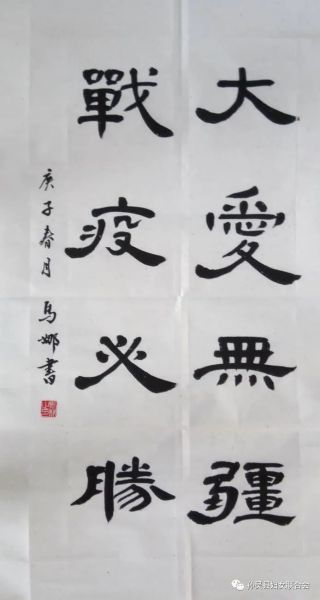 大愛無疆
戰疫必勝
庚子春月 馬娜書
孙吴县妇女联合会